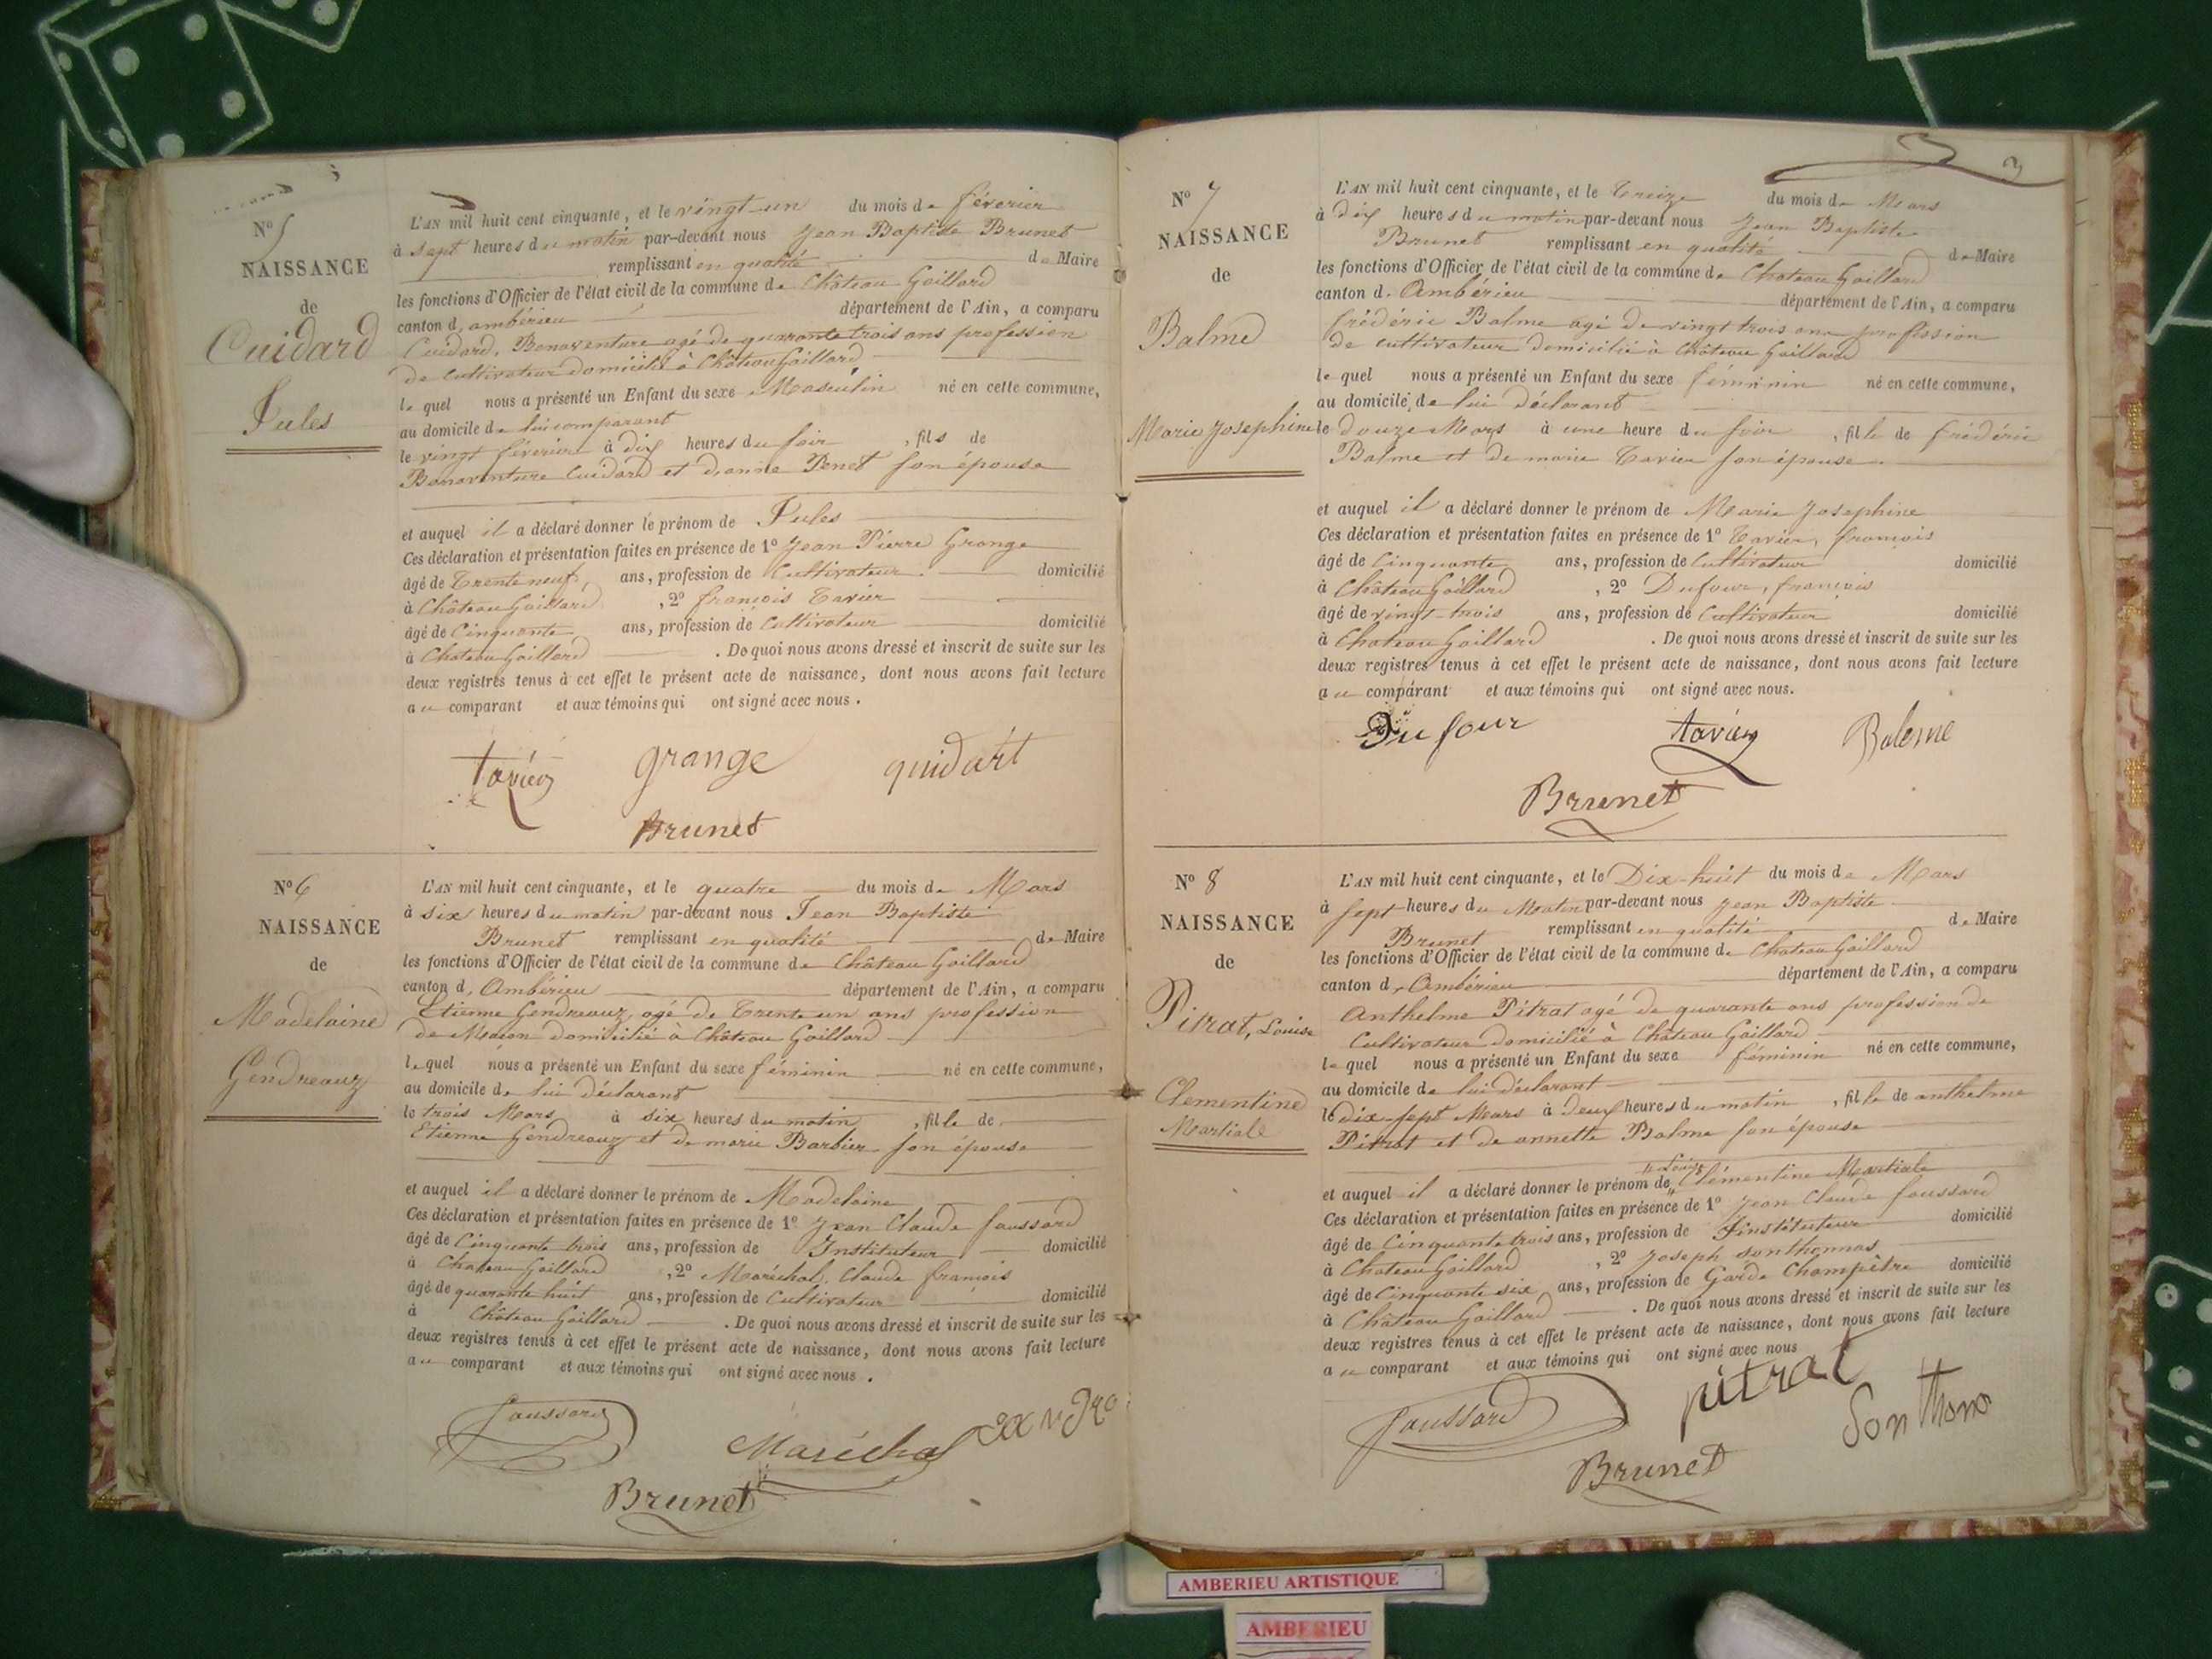 N° 5
NAISSANCE
de
Cuidard
Jules
L'AN mil huit cent cinquante, et le vingt-un du mois de féverier
à sept heures du matin par-devant nous Jean Baptiste Brunet
remplissant en qualité de Maire
les fonctions d'Officier de l'état civil de la commune de Château Gaillard
canton d, ambérieu département de l'Ain, a comparu
Cuidard, Bonaventure agé de quarante trois ans profession
de cultivateur domicilié à Château Gaillard
lequel nous a présenté un Enfant du sexe Masculin né en cette commune,
au domicile de lui comparant
le vingt féverier à dix heures du soir, fils de
Bonaventure Cuidard et d'anne Penet son épouse
et auquel il a déclaré donner le prénom de Jules
Ces déclaration et présentation faites en présence de 1° Jean Pierre Grange
âgé de Trente neuf, ans, profession de Cultivateur domicilié
à Château Gaillard, 2° françois Tavier
âgé de Cinquante ans, profession de Cultivateur domicilié
à Chateau Gaillard. De quoi nous avons dressé et inscrit de suite sur les
deux registres tenus à cet effet le présent acte de naissance, dont nous avons fait lecture
au comparant et aux témoins qui ont signé avec nous.
tavier grange quidart
Brunet
N° 6
NAISSANCE
de
Madelaine
Gendreaux
L'AN mil huit cent cinquante, et le quatre du mois de Mars
à six heures du matin par-devant nous Jean Baptiste
Brunet remplissant en qualité de Maire
les fonctions d'Officier de l'état civil de la commune de Château Gaillard
canton d, Ambérieu département de l'Ain, a comparu
Etienne Gendreaux, agé de Trente un ans profession
de Maçon domicilié à Château Gaillard
lequel nous a présenté un Enfant du sexe féminin né en cette commune,
au domicile de lui déclarant
le trois Mars à six heures du matin, fille de
Etienne Gendreaux et de marie Barbier son épouse
et auquel il a déclaré donner le prénom de Madelaine
Ces déclaration et présentation faites en présence de 1° Jean Claude faussard
âgé de Cinquante trois ans, profession de Instituteur domicilié
à Chateau Gaillard, 2° Maréchal, Claude françois
âgé de quarante huit ans, profession de Cultivateur domicilié
à Château Gaillard. De quoi nous avons dressé et inscrit de suite sur les
deux registres tenus à cet effet le présent acte de naissance, dont nous avons fait lecture
au comparant et aux témoins qui ont signé avec nous.
faussard Maréchal
Brunet
3
N° 7
NAISSANCE
de
Balme
Marie Josephine
L'AN mil huit cent cinquante, et le Treize du mois de Mars
à dix heures du matin par-devant nous Jean Baptiste
Brunet remplissant en qualité de Maire
les fonctions d'Officier de l'état civil de la commune de Chateau Gaillard
canton d, Ambérieu département de l'Ain, a comparu
frédéric Balme agé de vingt trois ans profession
de cultivateur domicilié à Château Gaillard
lequel nous a présenté un Enfant du sexe féminin né en cette commune,
au domicile de lui déclarant
le douze Mars à une heure du soir, fille de frédéric
Balme et de marie Tavier son épouse
et auquel il a déclaré donner le prénom de Marie Josephine
Ces déclaration et présentation faites en présence de 1° Tavier, françois
âgé de Cinquante ans, profession de Cultivateur domicilié
à Château Gaillard, 2° Dufour, francois
âgé de vingt-trois ans, profession de Cultivateur domicilié
à Chateau Gaillard. De quoi nous avons dressé et inscrit de suite sur les
deux registres tenus à cet effet le présent acte de naissance, dont nous avons fait lecture
au comparant et aux témoins qui ont signé avec nous.
Dufour tavier Balme
Brunet
N° 8
NAISSANCE
de
Pitrat, Louise
Clementine
Martiale
L'AN mil huit cent cinquante, et le Dix-huit du mois de Mars
à sept heures du Matin par-devant nous Jean Baptiste
Brunet remplissant en qualité de Maire
les fonctions d'Officier de l'état civil de la commune de Chateau Gaillard
canton d, Ambérieu département de l'Ain, a comparu
Anthelme Pitrat agé de quarante ans profession de
Cultivateur domicilié à Château Gaillard
lequel nous a présenté un Enfant du sexe féminin né en cette commune,
au domicile de lui déclarant
le dix-sept Mars à deux heures du matin, fille de anthelme
Pitrat et de annette Balme son épouse
et auquel il a déclaré donner le prénom de Louise Clémentine Martiale
Ces déclaration et présentation faites en présence de 1° Jean Claude faussard
âgé de Cinquante trois ans, profession de Jinstituteur domicilié
à Chateau Gaillard, 2° Joseph Sonthonnas
âgé de Cinquante six ans, profession de Garde Champêtre domicilié
à Chateau Gaillard. De quoi nous avons dressé et inscrit de suite sur les
deux registres tenus à cet effet le présent acte de naissance, dont nous avons fait lecture
au comparant et aux témoins qui ont signé avec nous
faussard pitrat Sonthona
Brunet
AMBERIEU ARTISTIQUE
AMBERIEU